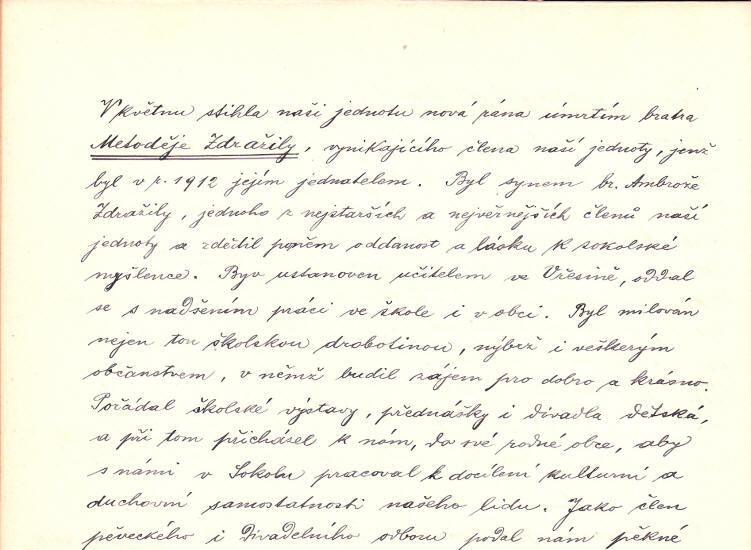 V květnu stihla naši jednotu nová rána úmrtím bratra
Metoděje Zdražily, vynikajícího člena naší jednoty, jenž
byl v r. 1912 jejím jednatelem. Byl synem br. Ambrože
Zdražily, jednoho z nejstarších a nejvěrnějších členů naší
jednoty a zdědil po něm oddanost a lásku k sokolské
myšlence. Byv ustanoven učitelem ve Vřesině, oddal
se s nadšením práci ve škole i v obci. Byl milován
nejen tou školskou drobotinou, nýbrž i veškerým
občanstvem, v němž budil zájem pro dobro a krásno.
Pořádal školské výstavy, přednášky i divadla dětská,
a při tom přicházel k nám, do své rodné obce, aby
s námi v Sokolu pracoval k docílení kulturní a
duchovní samostatnosti našeho lidu. Jako člen
pěveckého i divadelního odboru podal nám pěkné